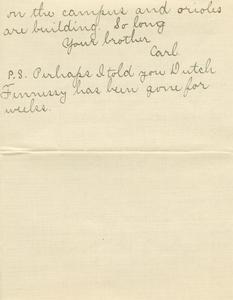 on the campus and orioles
are building. So long
Your brother
Carl
P.S. Perhaps I told you Dutch
Finnessy has been gone for
weeks.